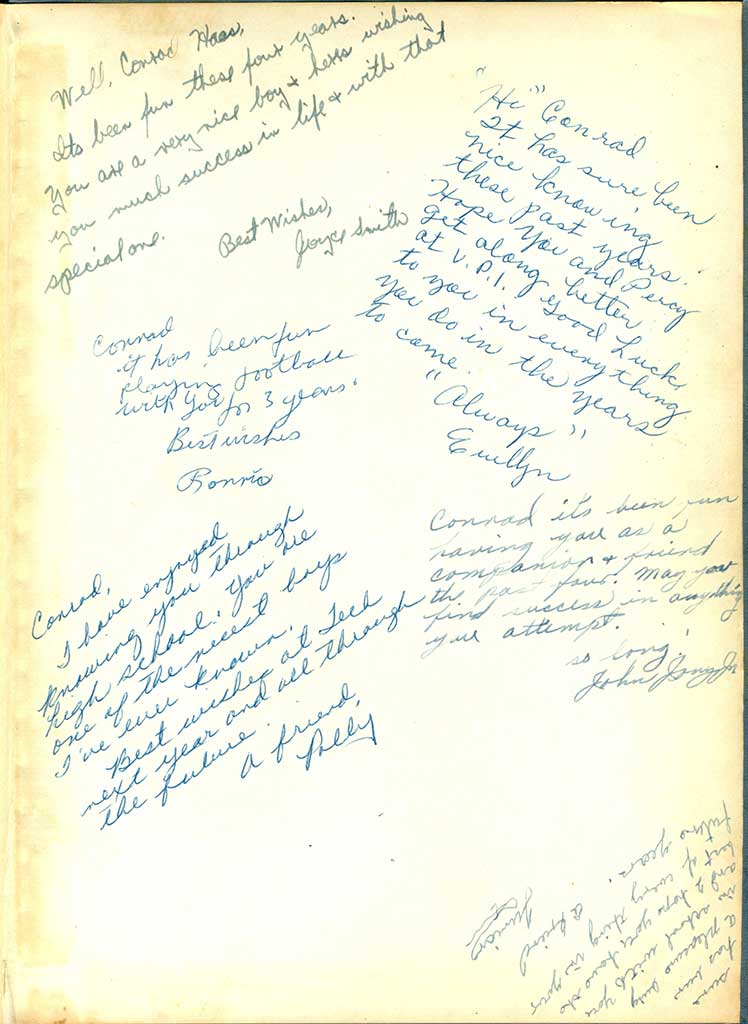 Well, Conrad Haas,
Its been fun these four years.
You are a very nice boy & heres wishing
you much success in life & with that
special one.
Best Wishes,
Joyce Smith
"Hi" Conrad
It has sure been
nice knowing
these past years.
Hope you and Percy
get along better
at V.P.I. Good Luck
to you in everything
you do in the years
to come.
"Always"
Evellyn
Conrad
it has been fun
playing football
with you for 3 years.
Best wishes
Ronnie
Conrad,
I have enjoyed
knowing you through
high school. You are
one of the nicest boys
I've ever known.
Best wishes at Tech
next year and all through
the future.
a friend,
Polly
Conrad its been fun
having you as a
companion & friend
the past four. May your
find success in anything
you attempt.
so long!
John
sure
has been
a pleasure
in school with you
and I hope you have the
best of every thing in your
future years.
a friend